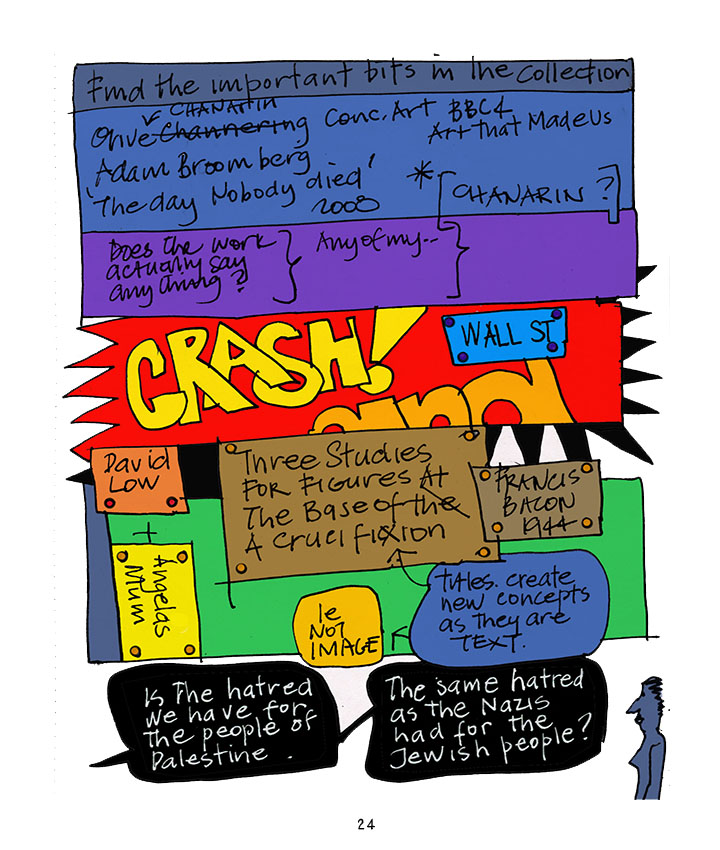 Find the important bits in the Collection
CHANARIN
Olive Channering Conc. Art BBC4
Art That Made Us
Adam Broomberg
'The day Nobody died'
2008
* [CHANARIN ?]
Does the work
actually say
anything?
Any of my--
CRASH!
WALL ST
and
David
LOW
+
Angelas
Mum
Three Studies
FOR FIGURES At
The Base of the
A Crucifixion
FRANCIS
BACON
1944
titles. create
new concepts
as they are
TEXT.
Ie
NOT
IMAGE
Is The hatred
we have for
the people of
Palestine .
The same hatred
as the Nazis
had for the
Jewish people?
24